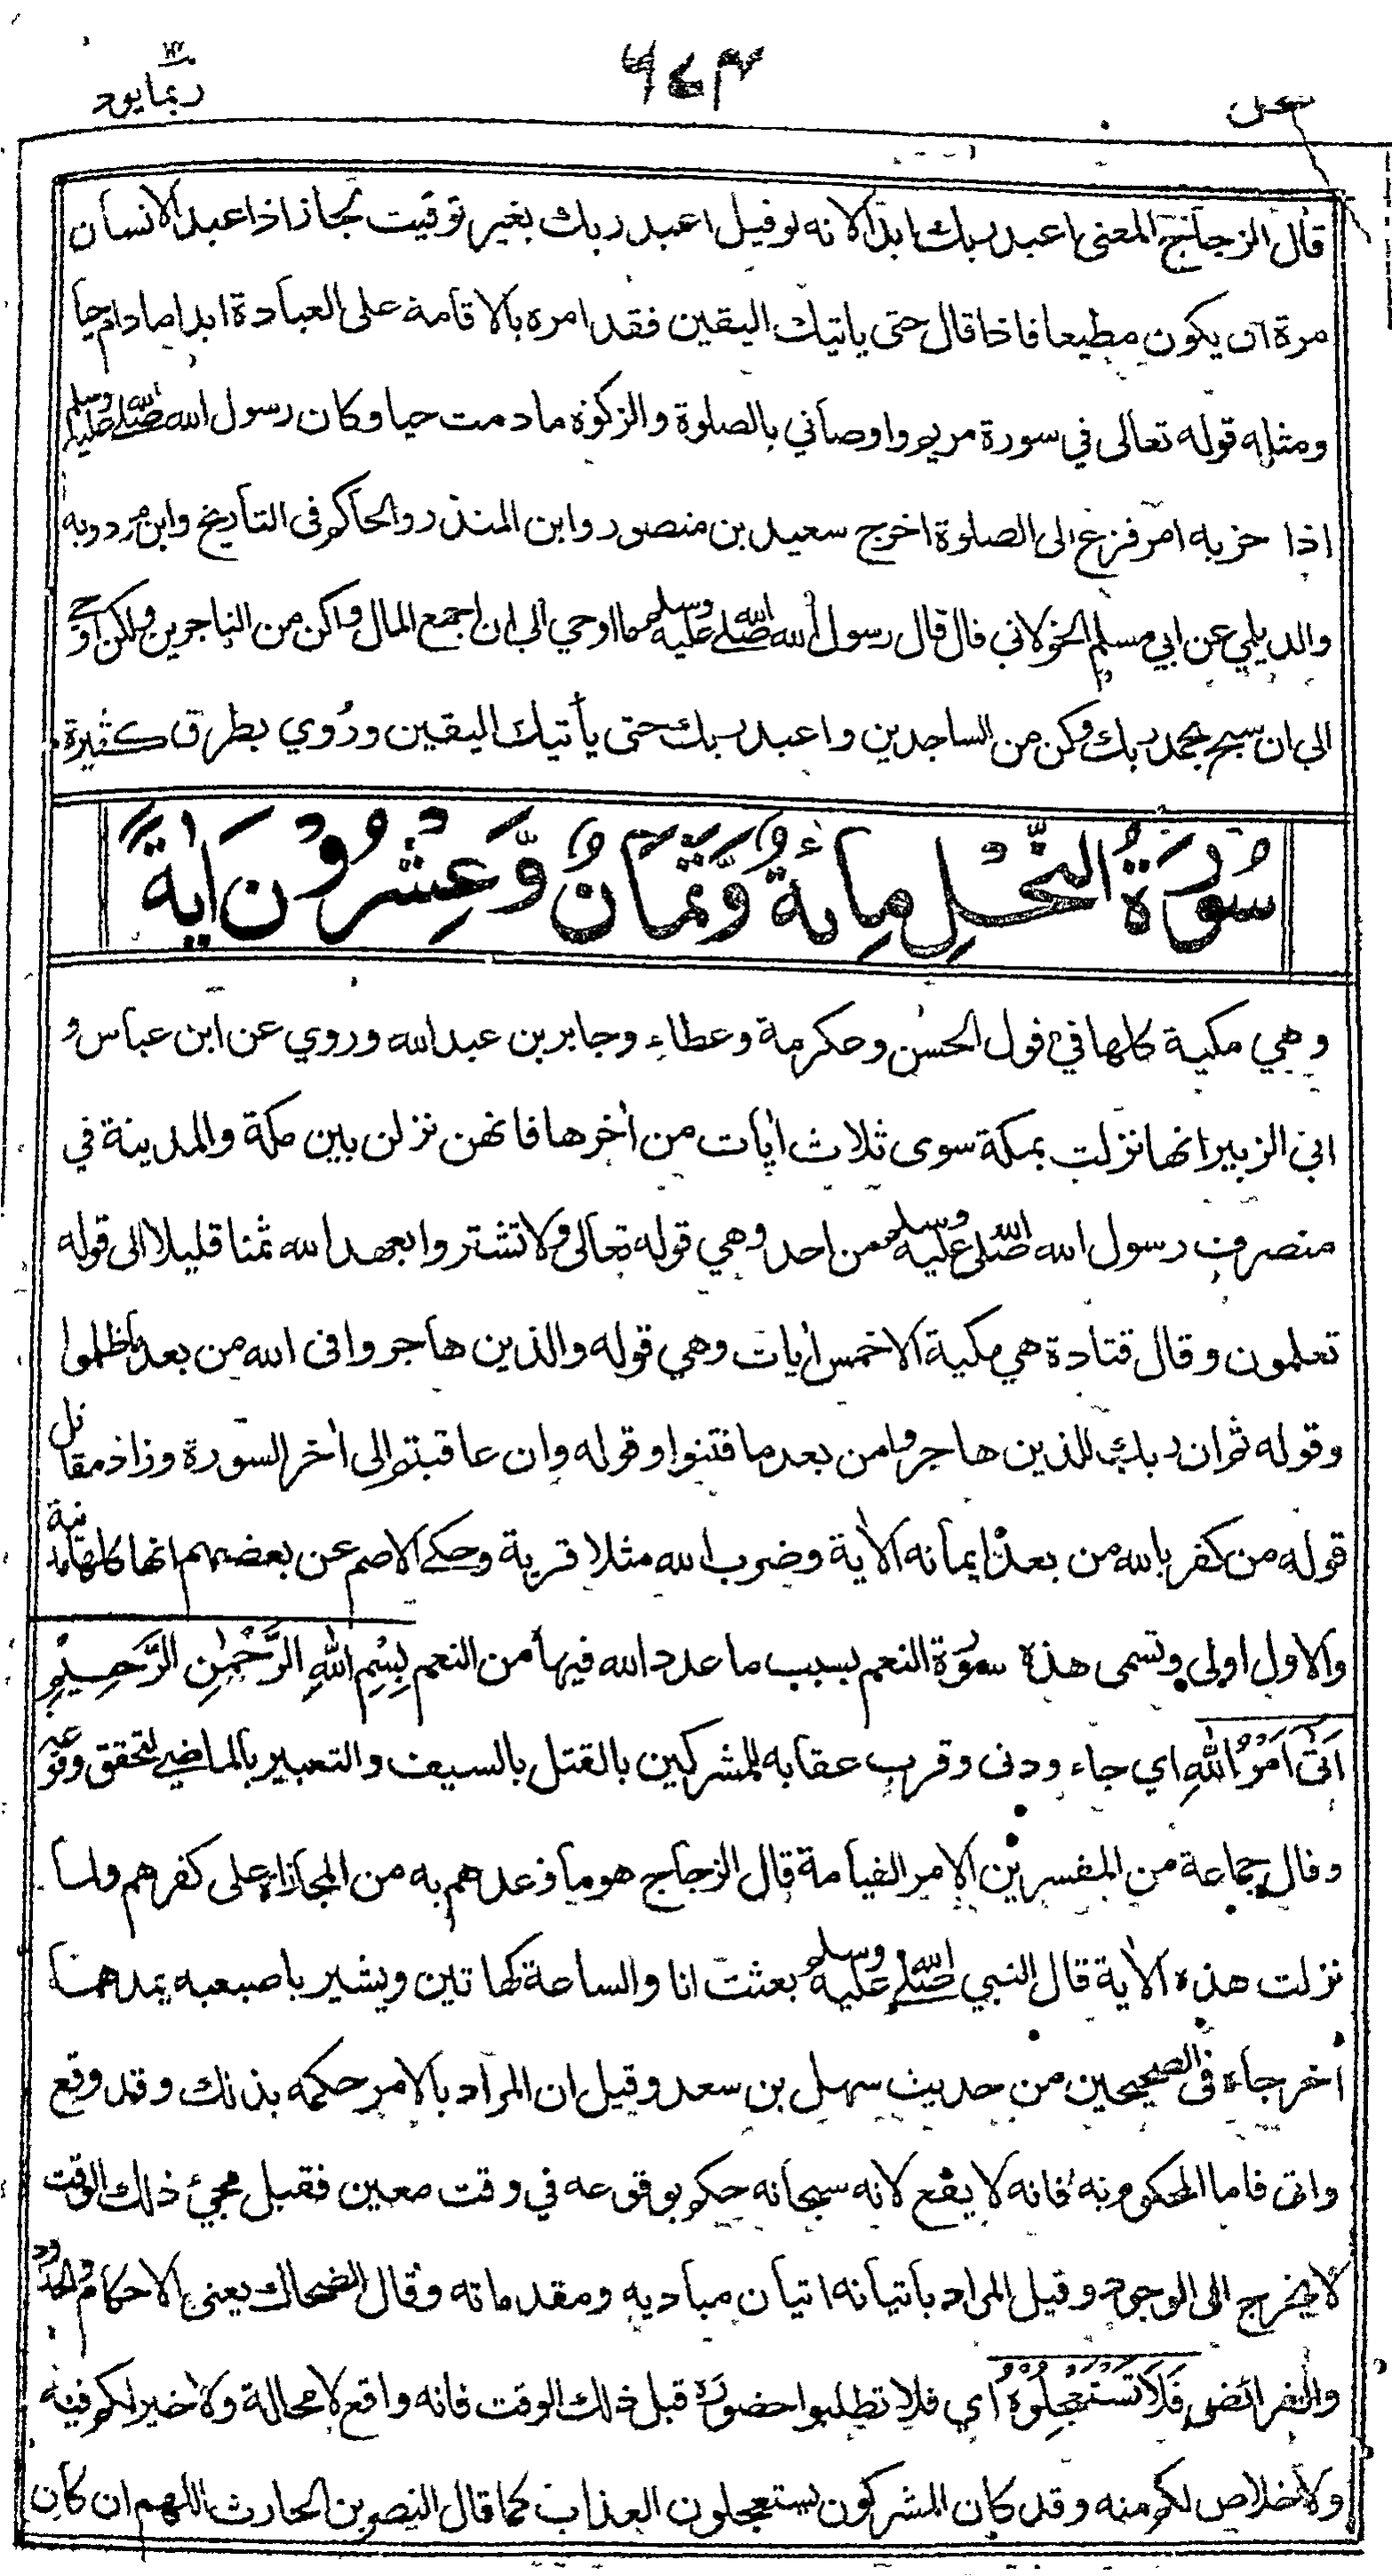 ربما يود
نحل
قال الزجاج المعنى اعبد ربك ابدا لانه لو قيل اعبد ربك بغير توقيت لجاز اذا عبد الانسان
مرة ان يكون مطيعا فاذا قال حتى ياتيك اليقين فقد امره بالاقامة على العبادة ابدا ما دام حيا
ومثله قوله تعالى في سورة مريم واوصاني بالصلوة والزكوة ما دمت حيا وكان رسول الله صلى الله عليه وسلم
اذا حزبه امر فزع الى الصلوة اخرج سعيد بن منصور وابن المنذر والحاكم فى التاريخ وابن مردويه
والديلمي عن ابي مسلم الخولاني قال قال رسول الله صلى الله عليه وسلم ما اوحي الي ان اجمع المال واكن من التاجرين ولكن اوحي
الي ان سبح بحمد ربك وكن من الساجدين واعبد ربك حتى يأتيك اليقين ورُوي بطرق كثيرة
سُوْرَةُ النَّحْلِ مِائَةٌ وَّثَمَانٌ وَّعِشْرُوْنَ اٰيَةً
وهي مكية كلها في قول الحسن وعكرمة وعطاء وجابر بن عبد الله وروي عن ابن عباس و
ابن الزبير انها نزلت بمكة سوى ثلاث اٰيات من اٰخرها فانهن نزلن بين مكة والمدينة في
منصرف رسول الله صلى الله عليه وسلم من احد وهي قوله تعالى ولا تشتروا بعهد الله ثمنا قليلا الى قوله
تعلمون وقال قتادة هي مكية الا خمس اٰيات وهي قوله والذين هاجروا فى الله من بعد ما ظلموا
وقوله ثم ان ربك للذين هاجروا من بعد ما فتنوا وقوله وان عاقبتم الى اٰخر السورة وزاد مقاتل
قوله من كفر بالله من بعد ايمانه الاٰية وضرب الله مثلا قرية وحكى الاصم عن بعضهم انها كلها مدنية
والاول اولى وتسمى هذه سورة النعم بسبب ما عدد الله فيها من النعم بِسْمِ اللّٰهِ الرَّحْمٰنِ الرَّحِيْمِ
اَتٰى اَمْرُ اللّٰهِ اي جاء ودنى وقرب عقابه للمشركين بالقتل بالسيف والتعبير بالماضي لتحقق وقوعه
وقال جماعة من المفسرين الامر القيامة قال الزجاج هو ما وعدهم به من المجازاة على كفرهم ولما
نزلت هذه الاٰية قال النبي صلى الله عليه وسلم بعثت انا والساعة كهاتين ويشير باصبعيه يمدهما
اخرجاه فى الصحيحين من حديث سهل بن سعد وقيل ان المراد بالامر حكمه بذلك وقد وقع
واتى فاما المحكوم به فانه لا يقع لانه سبحانه حكم بوقوعه في وقت معين فقبل مجيئ ذلك الوقت
لا يخرج الى الوجود وقيل المراد باتيانه اتيان مباديه ومقدماته وقال الضحاك يعنى الاحكام والحدود
والفرائض فَلَا تَسْتَعْجِلُوْهُ اي فلا تطلبوا حضوره قبل ذلك الوقت فانه واقع لا محالة ولا خير لكم فيه
ولا خلاص لكم منه وقد كان المشركون يستعجلون العذاب كما قال النضر بن الحارث اللهم ان كان